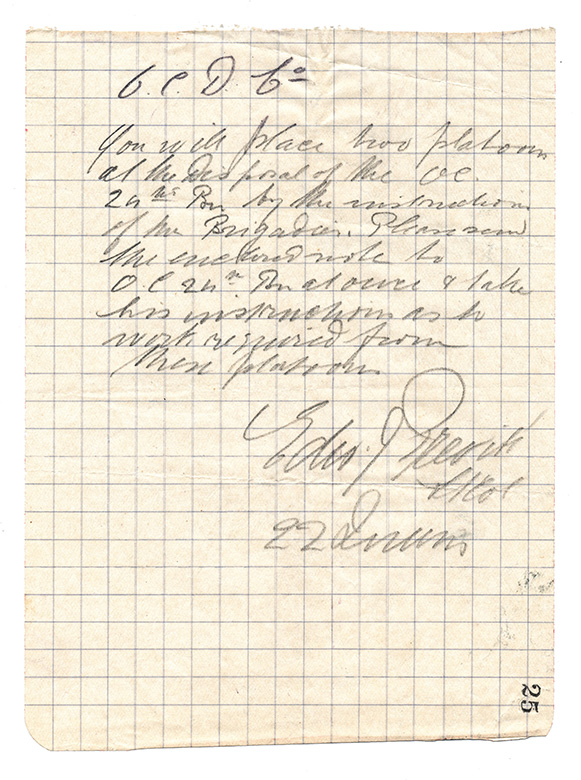 O. C. D. Co
You will place two platoons
at the disposal of the OC.
24th Bn by the instructions
of the Brigadier. Please send
the enclosed note to
O.C. 24th Bn at once & take
his instructions as to
work required from
these platoons
Edw. J
Lt Col
22
25